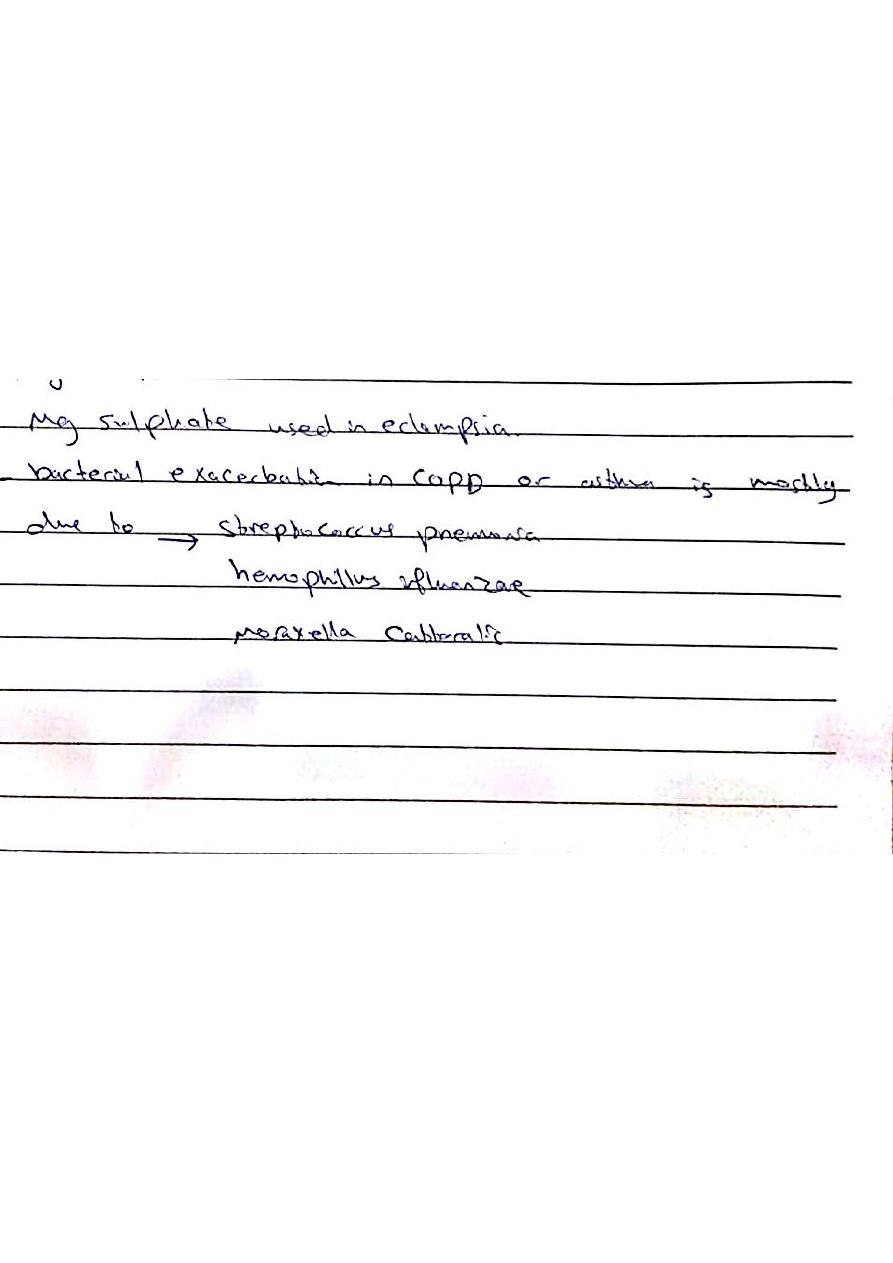 Mg sulphate used in eclampsia.
bacterial exacerbation in COPD or asthma is mostly
due to → streptococcus pneumonia
hemophillus ifluenzae
Moraxella Catteralis